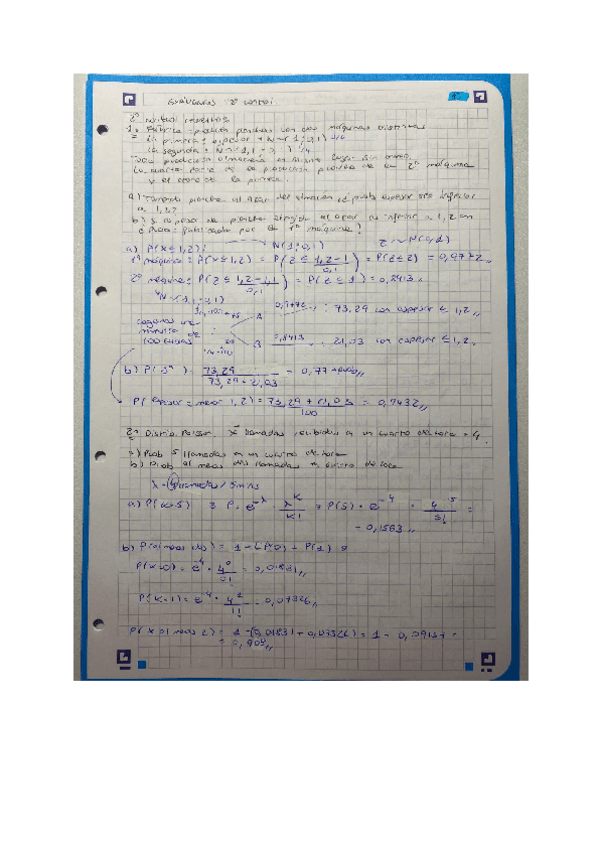 2º control
1. Fábrica produce planchas con dos máquinas distintas
la primera: espesor → N~(1; 0,1) 3/4
la segunda: N~(1,1 -
Toda producción almacena en mismo lugar sin orden.
La cuarta parte de la producción procede de la 2ª máquina
y el resto de la primera.
a) Tomando plancha al azar del almacén ¿ espesor sea inferior
a 1,2?
b) Si espesor de plancha elegida al azar es inferior a 1,2 cm
¿ fabricada por la 1ª máquina?
a) P(x≤1,2)? N(1; 0,1) Z~N(0,1)
1ª máquina: P(x≤1,2) = P(Z ≤ (1,2-1)/0,1) = P(Z≤2) = 0,9772
2ª máquina: P(Z ≤ (1,2-1,1)/0,1) = P(Z≤1) = 0,8413
cogemos una
muestra de
A 0,9772 : 73,29 con espesor ≤ 1,2
B 0,8413 : 21,03 con espesor ≤ 1,2
b) P( ) = 73,29 / (73,29 + 21,03) = 0,77
P(espesor = menor 1,2) = (73,29 + 21,03)/100 = 0,9432
2. Distrib. Poisson. x̄ llamadas recibidas en un cuarto de hora = 4.
a) Prob 5 llamadas en un cuarto de hora
b) Prob al menos dos llamadas en cuarto de hora
λ = 4 llamadas / 15 min
a) P(x=5) P = e^-λ · λ^k/k! → P(5) = e^-4 · 4^5/5! =
= 0,1563
b) P(al menos dos) = 1 - (P(0) + P(1))
P(x=0) = e^-4 · 4^0/0! = 0,01831
P(x=1) = 0,07326
P(x al menos 2) = 1 - (0,01831 + 0,07326) = 1 -
= 0,908